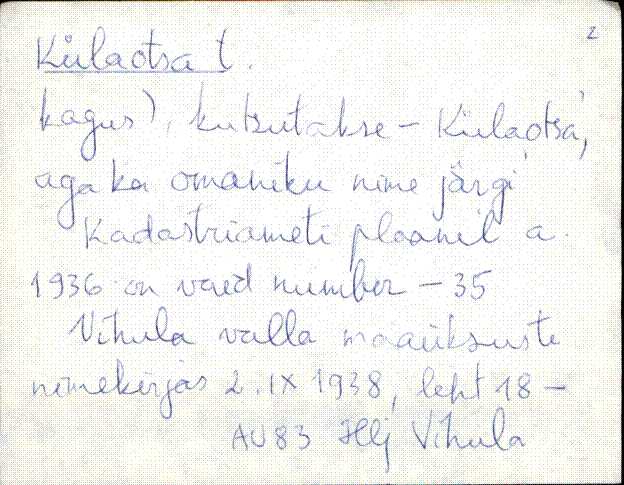 2
Külaotsa t.
kagus), kutsutakse - Külaotsa,
aga ka omaniku nime järgi
Kadastriameti plaanil a.
1936 on vaid number - 35
Vihula valla maaüksuste
nimekirjas 2. IX 1938, leht 18 -
AU83 Hlj Vihula